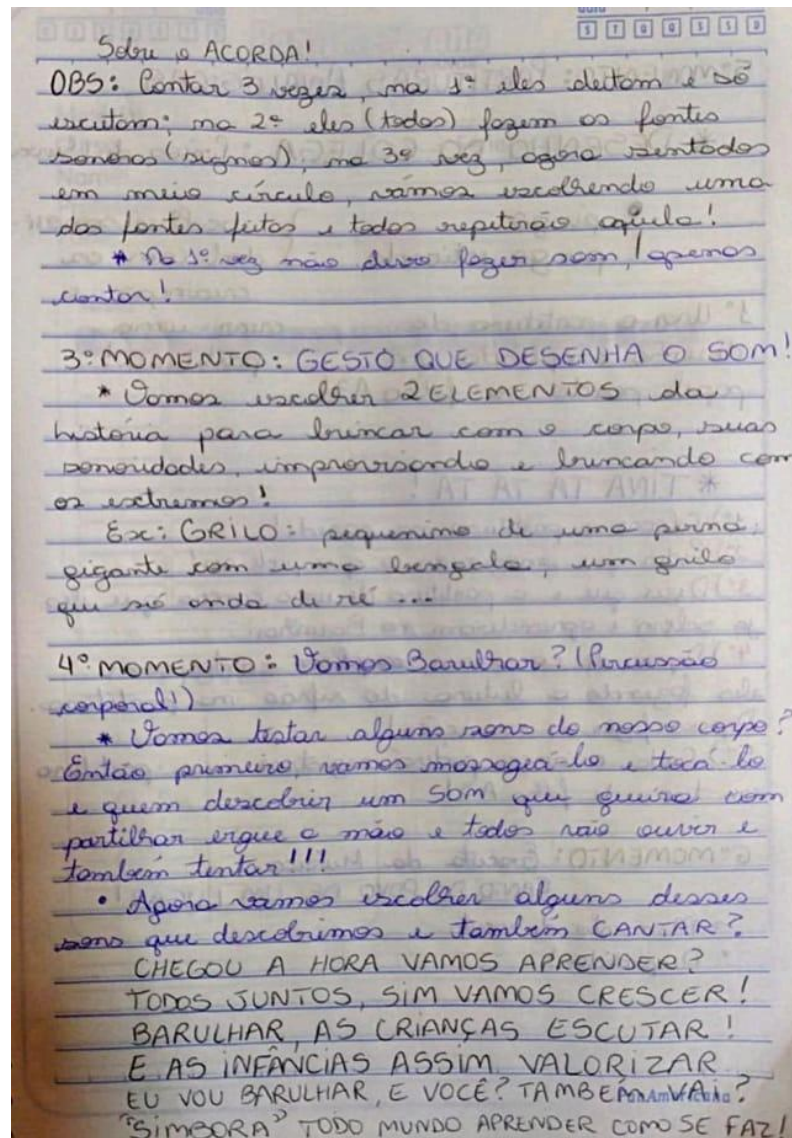 S T Q Q S S D
Sobre o ACORDA!
OBS: Contar 3 vezes, na 1ª eles deitam e só
escutam; na 2ª eles (todos) fazem as fontes
sonoras (signos), na 3ª vez, agora sentados
em meio círculo, vamos escolhendo uma
das fontes feitas e todos repetirão aquilo!
* Na 1ª vez não devo fazer som, apenas
contar!
3º MOMENTO: GESTO QUE DESENHA O SOM!
* Vamos escolher 2 ELEMENTOS da
história para brincar com o corpo, suas
sonoridades, improvisando e brincando com
os extremos!
Ex: GRILO: pequenino de uma perna,
gigante com uma bengala, um grilo
que só anda de ré ...
4º MOMENTO: Vamos Barulhar? (Percussão
corporal!)
* Vamos testar alguns sons do nosso corpo?
Então primeiro, vamos massageá-lo e tocá-lo
e quem descobrir um SOM que queira com
partilhar ergue a mão e todos vão ouvir e
também tentar!!!
• Agora vamos escolher alguns desses
sons que descobrimos e também CANTAR?
CHEGOU A HORA VAMOS APRENDER?
TODOS JUNTOS, SIM VAMOS CRESCER!
BARULHAR, AS CRIANÇAS ESCUTAR!
E AS INFÂNCIAS ASSIM VALORIZAR
EU VOU BARULHAR, E VOCÊ? TAMBÉM VAI?
"SIMBORA" TODO MUNDO APRENDER COMO SE FAZ!